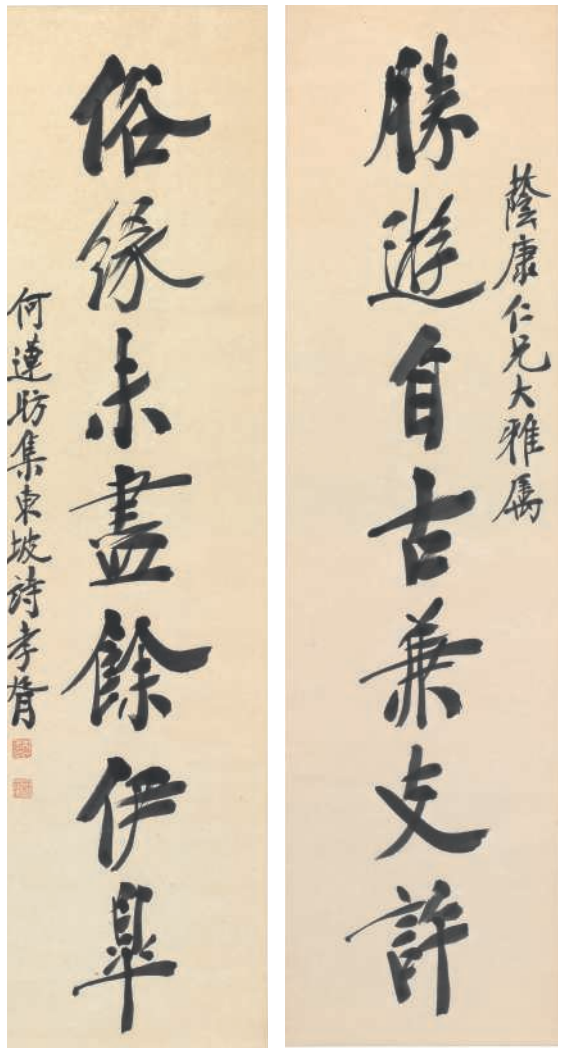 蔭康仁兄大雅属
勝遊自古兼支許
俗緣未盡餘伊皐
何蓮昉集東坡詩孝胥